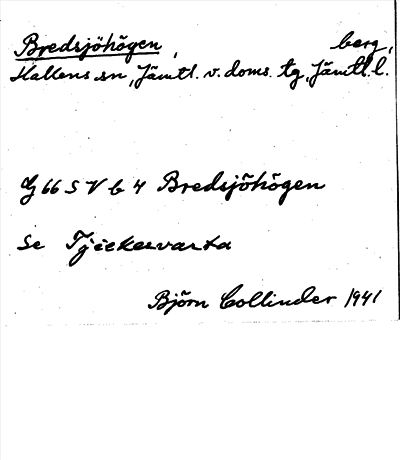 Bredsjöhögen, berg,
Kallens sn, Jämtl. v. doms. tg, Jämtl. l.
G 66 S V b 4 Bredsjöhögen
Se Tjiekesvarta
Björn Collinder 1941